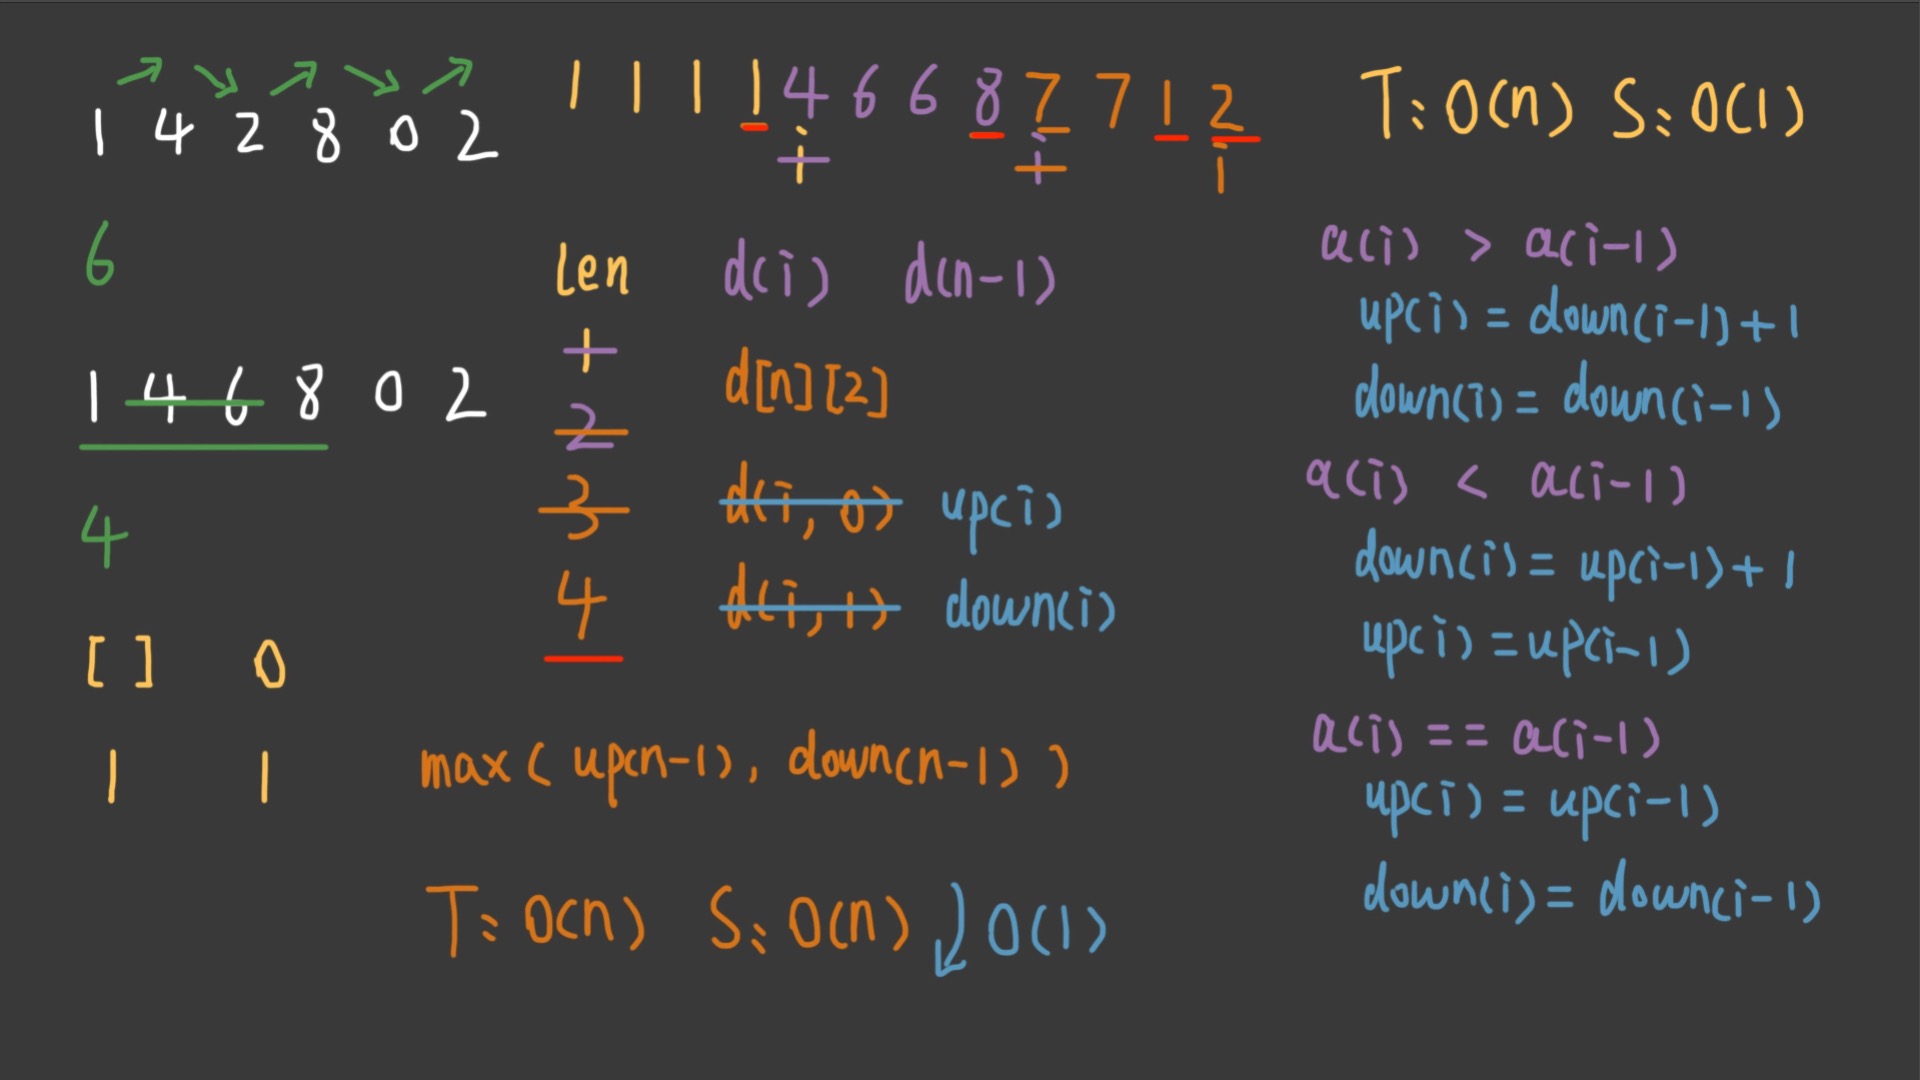 1 4 2 8 0 2
6
1 4 6 8 0 2
4
[ ] 0
1 1
1 1 1 1 4 6 6 8 7 7 1 2
i i i
len
1
2
3
4
d(i) d(n-1)
d[n][2]
d(i, 0) up(i)
d(i, 1) down(i)
max( up(n-1), down(n-1) )
T: O(n) S: O(n) O(1)
T: O(n) S: O(1)
a(i) > a(i-1)
up(i) = down(i-1)+1
down(i) = down(i-1)
a(i) < a(i-1)
down(i) = up(i-1)+1
up(i) = up(i-1)
a(i) == a(i-1)
up(i) = up(i-1)
down(i) = down(i-1)